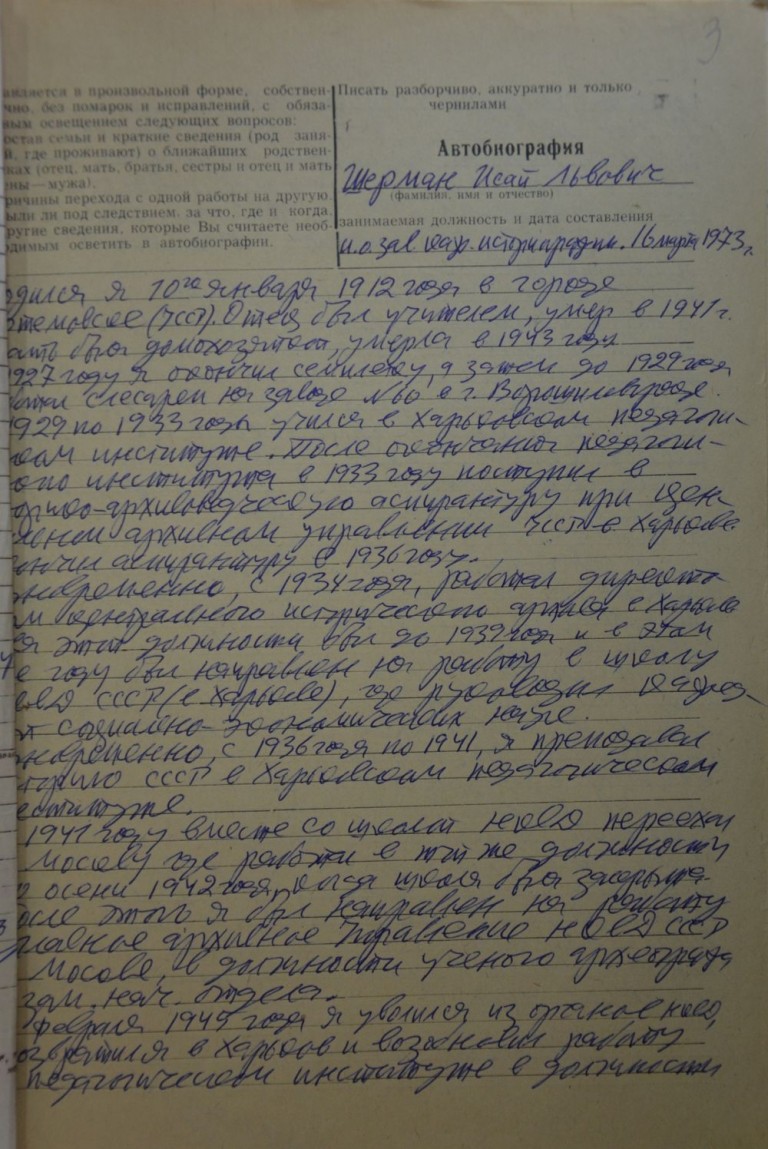 3
авляется в произвольной форме, собствен-
чно, без помарок и исправлений, с обяза-
ным освещением следующих вопросов:
остав семьи и краткие сведения (род заня-
й, где проживают) о ближайших родствен-
ках (отец, мать, братья, сестры и отец и мать
ены — мужа).
ричины перехода с одной работы на другую.
ыли ли под следствием, за что, где и когда.
ругие сведения, которые Вы считаете необ-
одимым осветить в автобиографии.
Писать разборчиво, аккуратно и только
чернилами
Автобиография
Шерман Исай Львович
(фамилия, имя и отчество)
занимаемая должность и дата составления
и.о зав каф. историографии. 16 марта 1973 г.
одился я 10го января 1912 года в городе
темовске (УССР). Отец был учителем, умер в 1941 г.
ать была домохозяйкой, умерла в 1943 году
1927 году я окончил семилетку, а затем до 1929 года
ботал слесарем на заводе №60 в г. Ворошиловграде.
1929 по 1933 годы учился в Харьковском педагоги-
ском институте. После окончания педагоги-
ого института в 1933 году поступил в
орико-архивоведческую аспирантуру при Цен-
льном архивном управлении УССР в Харькове
ончил аспирантуру в 1936 году.
новременно, с 1934 года, работал директо-
м центрального исторического архива в Харькове
На этой должности был до 1939 года и в этом
е году был направлен на работу в школу
НКВД СССР (в Харькове), где руководил кафед-
социально-экономических наук.
новременно, с 1936 года по 1941, я преподавал
торию СССР в Харьковском педагогическом
нституте.
1941 году вместе со школой НКВД переехал
Москву где работал в той же должности
о осени 1942 года, когда школа была закрыта.
осле этого я был направлен на работу
главное архивное Управление НКВД СССР
Москве, в должности ученого археографа
зам. нач. отдела.
Февраля 1945 года я уволился из органов НКВД,
озвратился в Харьков и возобновил работу
педагогическом институте в должности